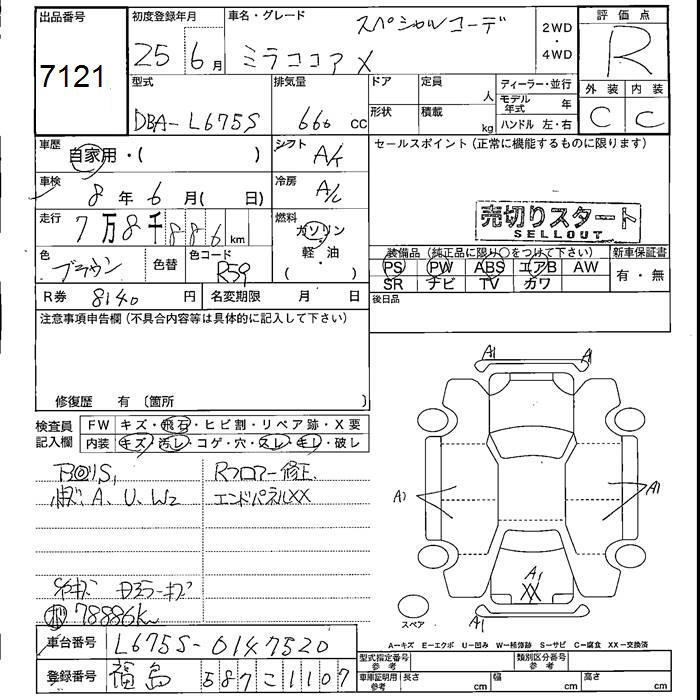 出品番号 初度登録年月 車名・グレード 評価点
7121 25 6月 ミラココア X スペシャルコーデ 2WD・4WD R
型式 排気量 ドア 定員 人 ディーラー・並行 外装 内装
DBA-L675S 660 cc 形状 積載 kg モデル年式 年 C C
ハンドル 左・右
車歴 自家用・( ) シフト A/T セールスポイント(正常に機能するものに限ります)
車検 8年6月( 日) 冷房 A/C
売切りスタート
SELLOUT
走行 7万8千886km 燃料 ガソリン・軽油 ( )
色 ブラウン 色替 色コード R59
装備品(純正品に限り○をつけて下さい) 新車保証書
PS PW ABS エアB AW 有・無
SR ナビ TV カワ
R券 8140円 名変期限 月 日 後日品
注意事項申告欄(不具合内容等は具体的に記入して下さい)
修復歴 有〔箇所 〕
検査員記入欄 FW キズ・飛石・ヒビ割・リペア跡・X要
内装 キズ・汚レ・コゲ・穴・スレ・キレ・破レ
A1 A1
Rフロアー修正
A、U、W2 エンドパネルXX
A1 A1
A1
XX
78886km
スペア A1
車台番号 L675S-0147520
A=キズ E=エクボ U=凹み W=補修跡 S=サビ C=腐食 XX=交換済
登録番号 福島 587 こ 1107
型式指定番号 参考 類別区分番号 参考
車庫証明用 参考 長さ cm 幅 cm 高さ cm